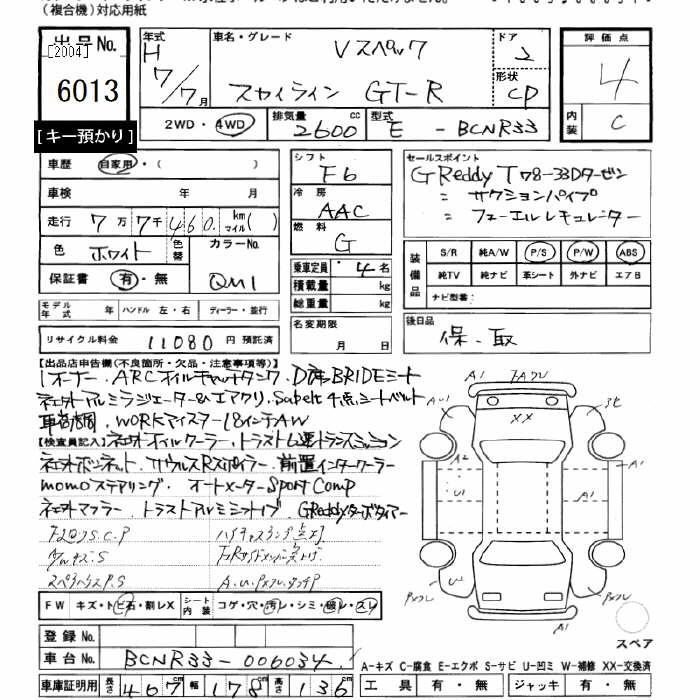 (複合機)対応用紙
出品No. [2004]
6013
[キー預かり]
年式 H 7/7月
車名・グレード Vスペック
スカイライン GT-R
ドア 2
形状 CP
評価点 4
内装 C
2WD・4WD
排気量 2600 cc
型式 E - BCNR33
車歴 自家用・( )
車検 年 月
走行 7万7千460 km マイル( )
色 ホワイト 色替
カラーNo. QM1
保証書 有・無
シフト F6
冷房 AAC
燃料 G
乗車定員 4名
積載量 kg
総重量 kg
セールスポイント
GReddy T78-33Dタービン
〃 サクションパイプ
〃 フューエルレギュレーター
装備品 S/R 純A/W P/S P/W ABS
純TV 純ナビ 革シート 外ナビ エアB
ナビ型番:
モデル年式 年 ハンドル 左・右 ディーラー・並行
リサイクル料金 11080 円 預託済
名変期限 月 日
後日品
保、取
【出品店申告欄(不良箇所・欠品・注意事項等)】
1オーナー、ARCオイルキャッチタンク、D席BRIDEシート
社外アルミラジエーター&エアクリ、Sabelt4点シートベルト
車高調、WORKマイスター18インチAW
【検査員記入】社外オイルクーラー、トラスト6速トランスミッション
社外ボンネット、ザウルスRスポイラー、前置インタークーラー
momoステアリング、オートメーターSport Comp
社外マフラー、トラストアルミ GReddyターボタイマー
FW キズ・トビ石・割レX
シート内装 コゲ・穴・汚レ・シミ・破レ・スレ
登録No.
車台No. BCNR33-006034
車庫証明用 長さ 467 幅 178 高さ 136
A1
A1
A2
U1
A1
A1
A1
XX
スペア
A-キズ C-腐食 E-エクボ S-サビ U-凹ミ W-補修 XX-交換済
工具 有・無 ジャッキ 有・無